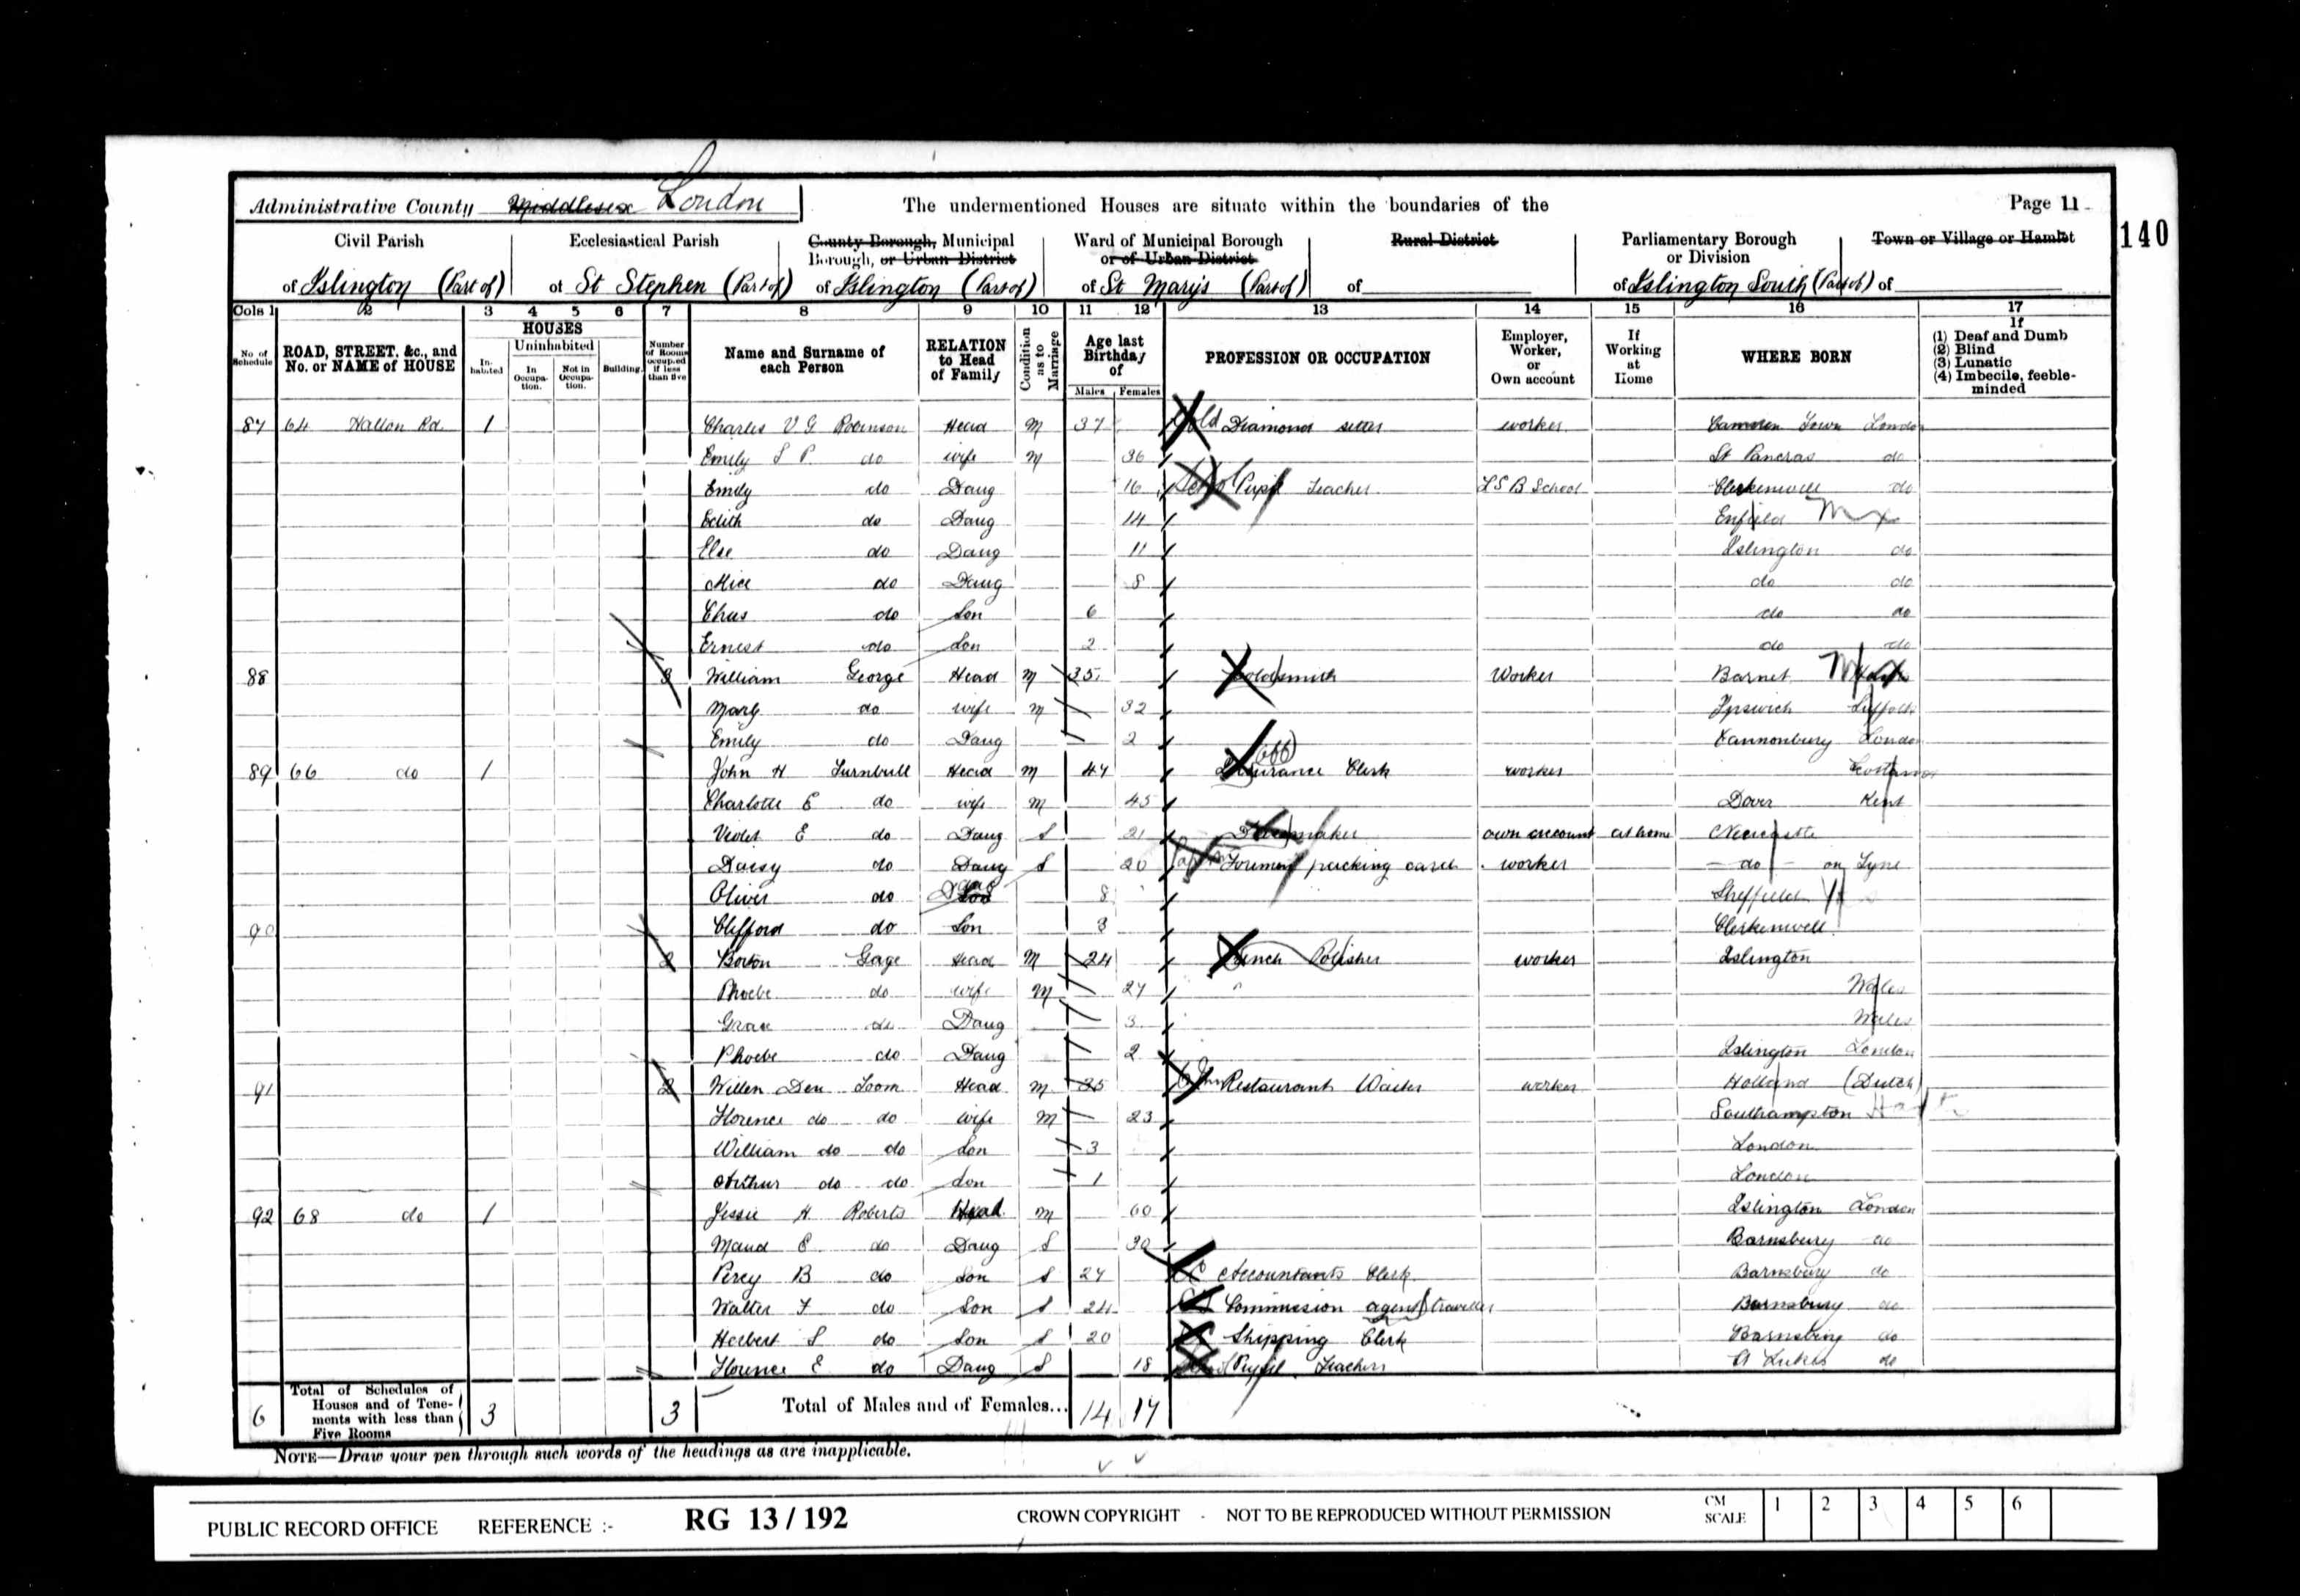 Administrative County Middlesex London The undermentioned Houses are situate within the boundaries of the Page 11
140
Civil Parish Ecclesiastical Parish County Borough, Municipal Borough, or Urban District Ward of Municipal Borough or of Urban District Rural District Parliamentary Borough or Division Town or Village or Hamlet
of Islington (Part of) of St Stephen (Part of) of Islington (Part of) of St Mary's (Part of) of of Islington South (Part of) of
Cols 1 2 3 4 5 6 7 8 9 10 11 12 13 14 15 16 17
No of Schedule ROAD, STREET, &c., and No. or NAME of HOUSE HOUSES Inhabited Uninhabited In Occupation. Not in Occupation. Building. Number of Rooms occupied if less than five Name and Surname of each Person RELATION to Head of Family Condition as to Marriage Age last Birthday of Males Females PROFESSION OR OCCUPATION Employer, Worker, or Own account If Working at Home WHERE BORN If (1) Deaf and Dumb (2) Blind (3) Lunatic (4) Imbecile, feeble-minded
87 64 Halton Rd 1 Charles V G Robinson Head M 37 Gold Diamond setter worker Camden Town London
Emily S P do wife M 36 St Pancras do
Emily do Daug 16 Pupil Teacher L S B School Clerkenwell do
Edith do Daug 14 Enfield Mx
Else do Daug 11 Islington do
Alice do Daug 8 do do
Chas do Son 6 do do
Ernest do Son 2 do do
88 3 William George Head M 35 Goldsmith Worker Barnet
Mary do wife M 32 Ipswich Suffolk
Emily do Daug 2 Cannonbury London
89 66 do 1 John H Turnbull Head M 47 Insurance Clerk worker
Charlotte E do wife M 45 Dover Kent
Violet E do Daug S 21 Dressmaker own account at home Newcastle
Daisy do Daug S 20 packing worker do on Tyne
Oliver do 8 Sheffield
90 Clifford do Son 3 Clerkenwell
2 Gage Head M 24 French Polisher worker Islington
Phoebe do wife M 27 Wales
Grace do Daug 3 Wales
Phoebe do Daug 2 Islington London
91 2 Willen Den Toom Head M 35 Restaurant Waiter worker Holland (Dutch)
Florence do do wife M 23 Southampton
William do do Son 3 London
Arthur do do Son 1 London
92 68 do 1 Jessie H Roberts Head M 60 Islington London
Maud E do Daug S 30 Barnsbury do
Percy B do Son S 27 Accountants Clerk Barnsbury do
Walter F do Son S 24 Commission agent traveller Barnsbury do
Herbert S do Son S 20 Shipping Clerk Barnsbury do
Florence E do Daug S 18 Pupil Teacher St Lukes do
6 Total of Schedules of Houses and of Tenements with less than Five Rooms 3 3 Total of Males and of Females... 14 17
NOTE—Draw your pen through such words of the headings as are inapplicable.
PUBLIC RECORD OFFICE REFERENCE :- RG 13 / 192 CROWN COPYRIGHT - NOT TO BE REPRODUCED WITHOUT PERMISSION CM SCALE 1 2 3 4 5 6